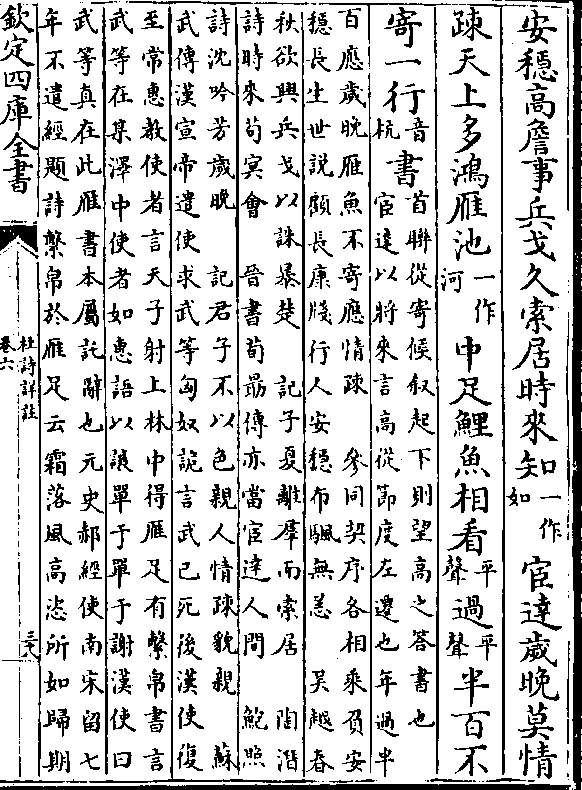 安穩高詹事兵戈久索居時來知一作如宦達歲晚莫情
疎天上多鴻雁池一作河中足鯉魚相看平聲過平聲半百不
寄一行音杭書首聯從寄候叙起下則望高之答書也
宦達以將來言高從節度左遷也年過半
百應歲晚雁魚不寄應情疎　參同契序各相乘負安
穩長生世說顧長康牋行人安穩布颿無恙　吴越春
秋欲興兵戈以誅暴楚　記子夏離羣而索居　陶潛
詩時來苟冥會　晉書荀勗傳亦當宦達人間　鮑照
詩沈吟芳歲晚　記君子不以色親人情疎貌親　蘇
武傳漢宣帝遣使求武等匈奴詭言武已死後漢使復
至常惠教使者言天子射上林中得雁足有繫帛書言
武等在某澤中使者如惠語以讓單于單于謝漢使曰
武等真在此雁書本屬託辭也元史郝經使南宋留七
年不遣經題詩繫帛於雁足云霜落風高恣所如歸期
欽定四庫全書
杜詩詳註
卷六
三六